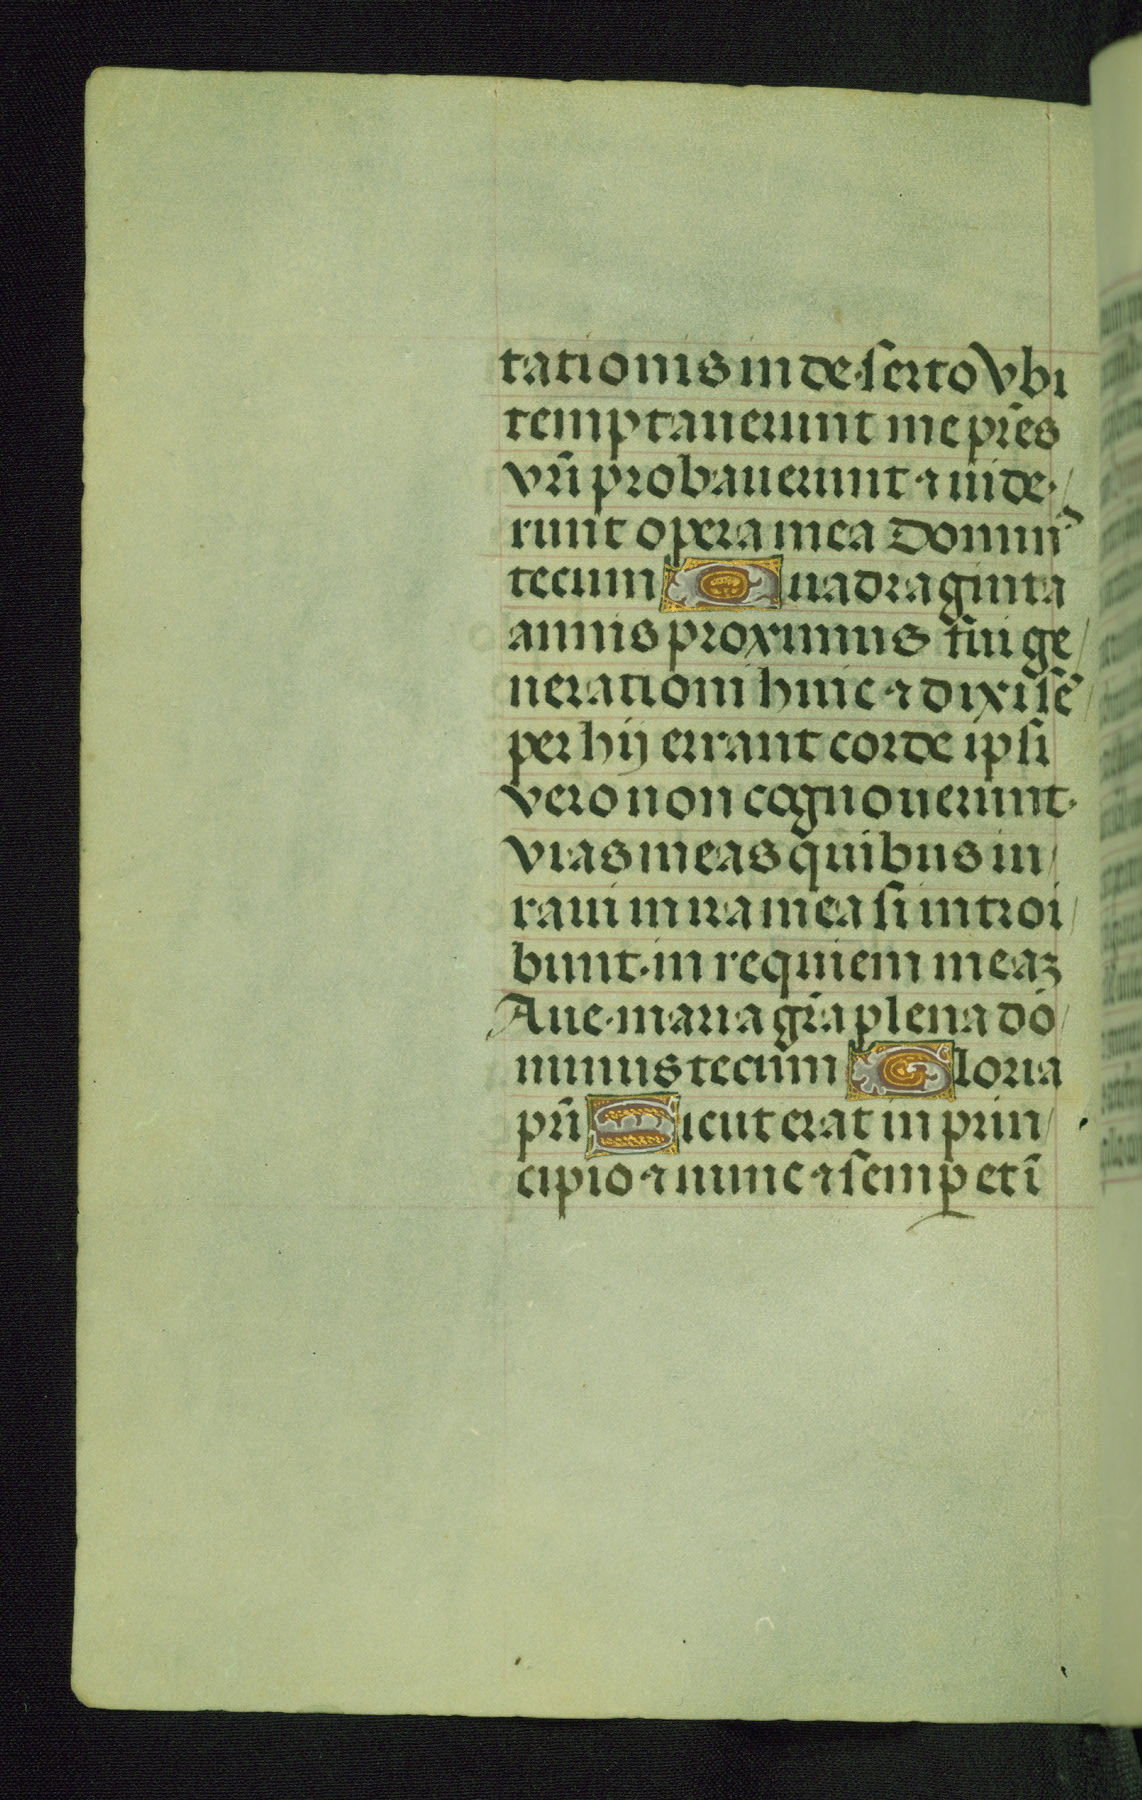 tationis in deserto Vbi
temptauerunt me pr̃es
vr̃i probauerunt ⁊ uide
runt opera mea Domin⁹
tecum Quadraginta
annis proximus fui ge
nerationi huic ⁊ dixi sẽ
per hij errant corde ipsi
vero non cognouerunt
vias meas quibus iu
raui in ira mea si introi
bunt in requiem meaꝫ
Aue maria gr̃a plena do
minus tecum Gloria
pr̃i Sicut erat in prin
cipio ⁊ nunc ⁊ semꝑ et ĩ